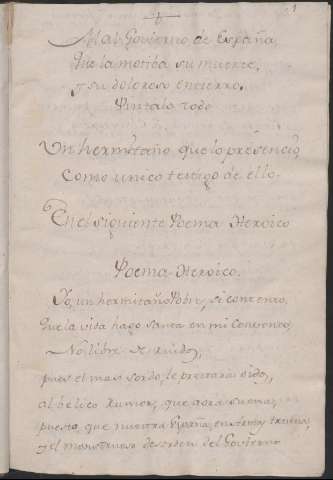 1
Al al Govierno de España,
Que la motiba su muerte,
y su doloroso entierro,
Pintalo todo
Un hermitaño que lo presenciò,
Como unico testigo de ello.
En el siguiente Poema Heroico
Poema Heroico.
Yo, un hermitaño Pobre, si contento,
Que la vida hago santa en mi Convento,
No libre de ruidos,
pues el mas sordo, le prestarà oidos,
al belico rumor, que aora suena,
puesto, que nuestra España,
y el monstruoso desorden del Govierno